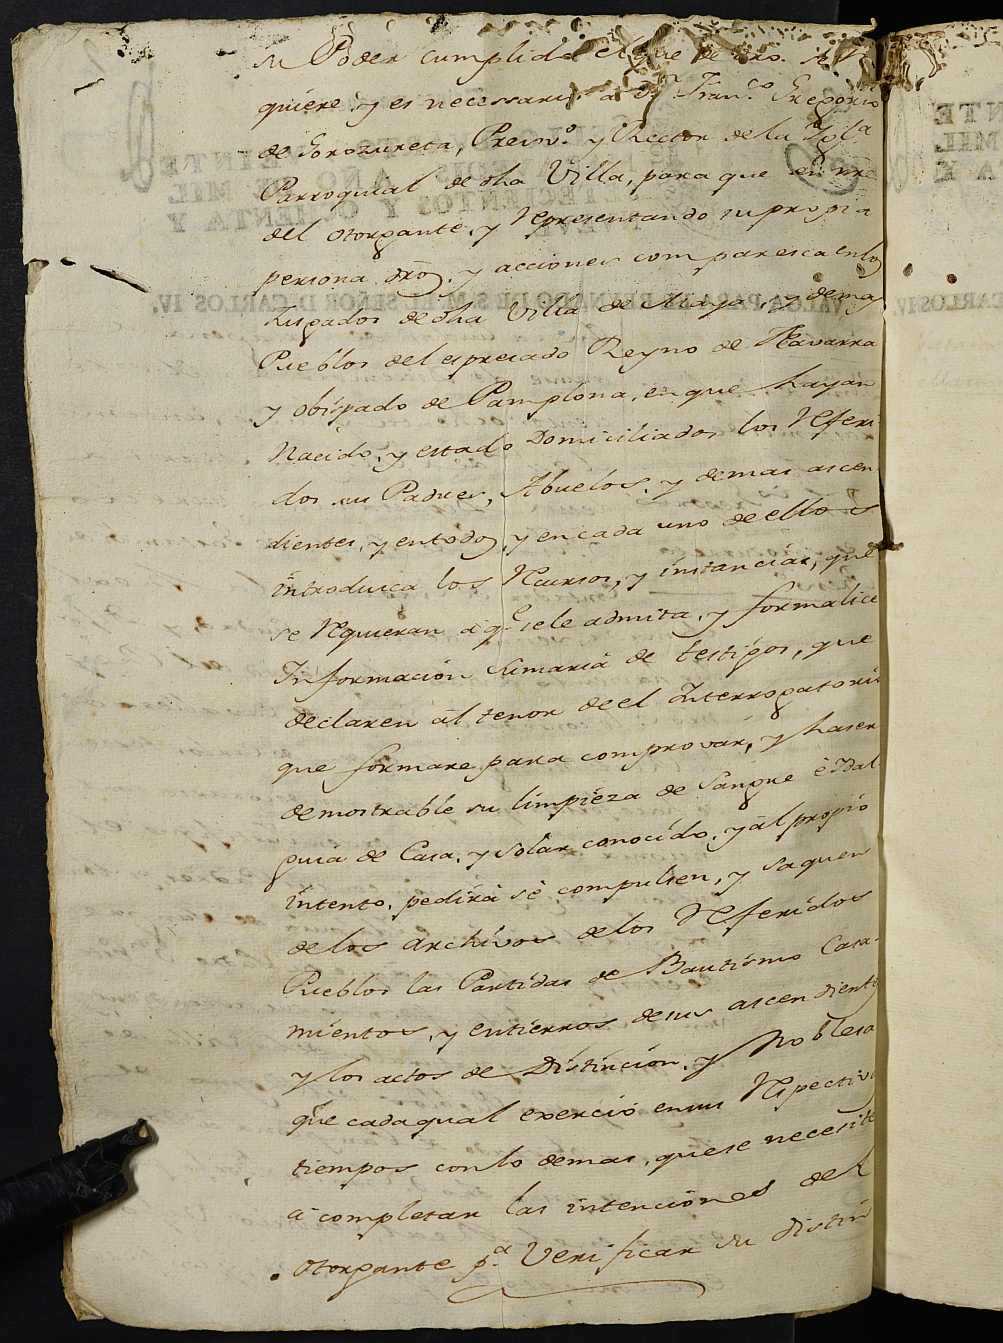 su Poder cumplido el que de dro. se re
quiere, y es necessario a Dn. Franco. Gregorio
de Gorozurreta, Presvo. y Rector de la Ygla.
Parroquial de dha Villa, para que en nre
del otorgante, y representando su propia
persona, dros. y acciones comparesca en los
Jusgados de dha Villa de Maya, y demas
Pueblos del expresado Reyno de Navarra
y obispado de Pamplona, en que hayan
Nacido, y estado Domiciliados los referi
dos sus Padres, Abuelos, y demas ascen
dientes, y en todos, y en cada uno de ellos
introdusca los recursos, y instancias, que
se requieran a qe. sele admita, y formalice
Informacion Sumaria de testigos, que
declaren al tenor de el Interrogatorio
que formare para comprovar, y haser
demostrable su limpieza de Sangre è Idal
guia de Casa, y Solar conocido, y al propio
intento, pedirá se compulsen, y saquen
de los archivos de los referidos
Pueblos las Partidas de Bautismo Casa-
mientos, y entierros de sus ascendientes
y los actos de Distincion, y Noblesa
que cada qual exerció en sus respectivos
tiempos con lo demas, que se necesite
a completar las intenciones del
otorgante pa. Verificar su distin